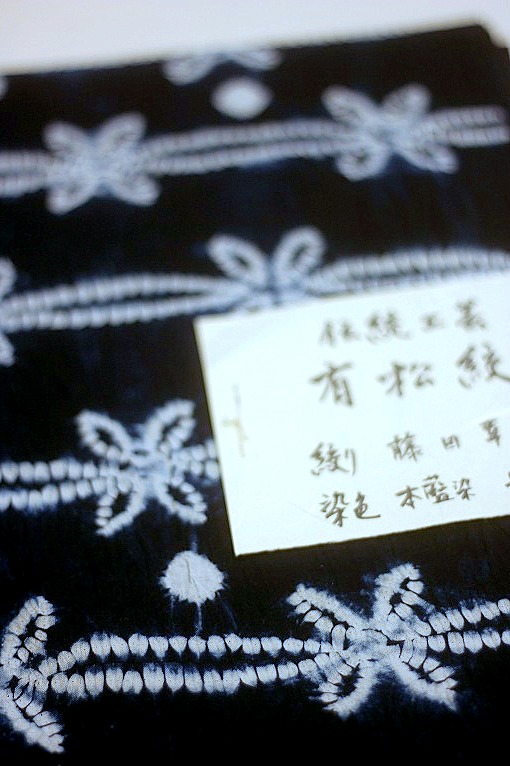 伝統工芸
有松絞
絞り 藤田
染色 本藍染